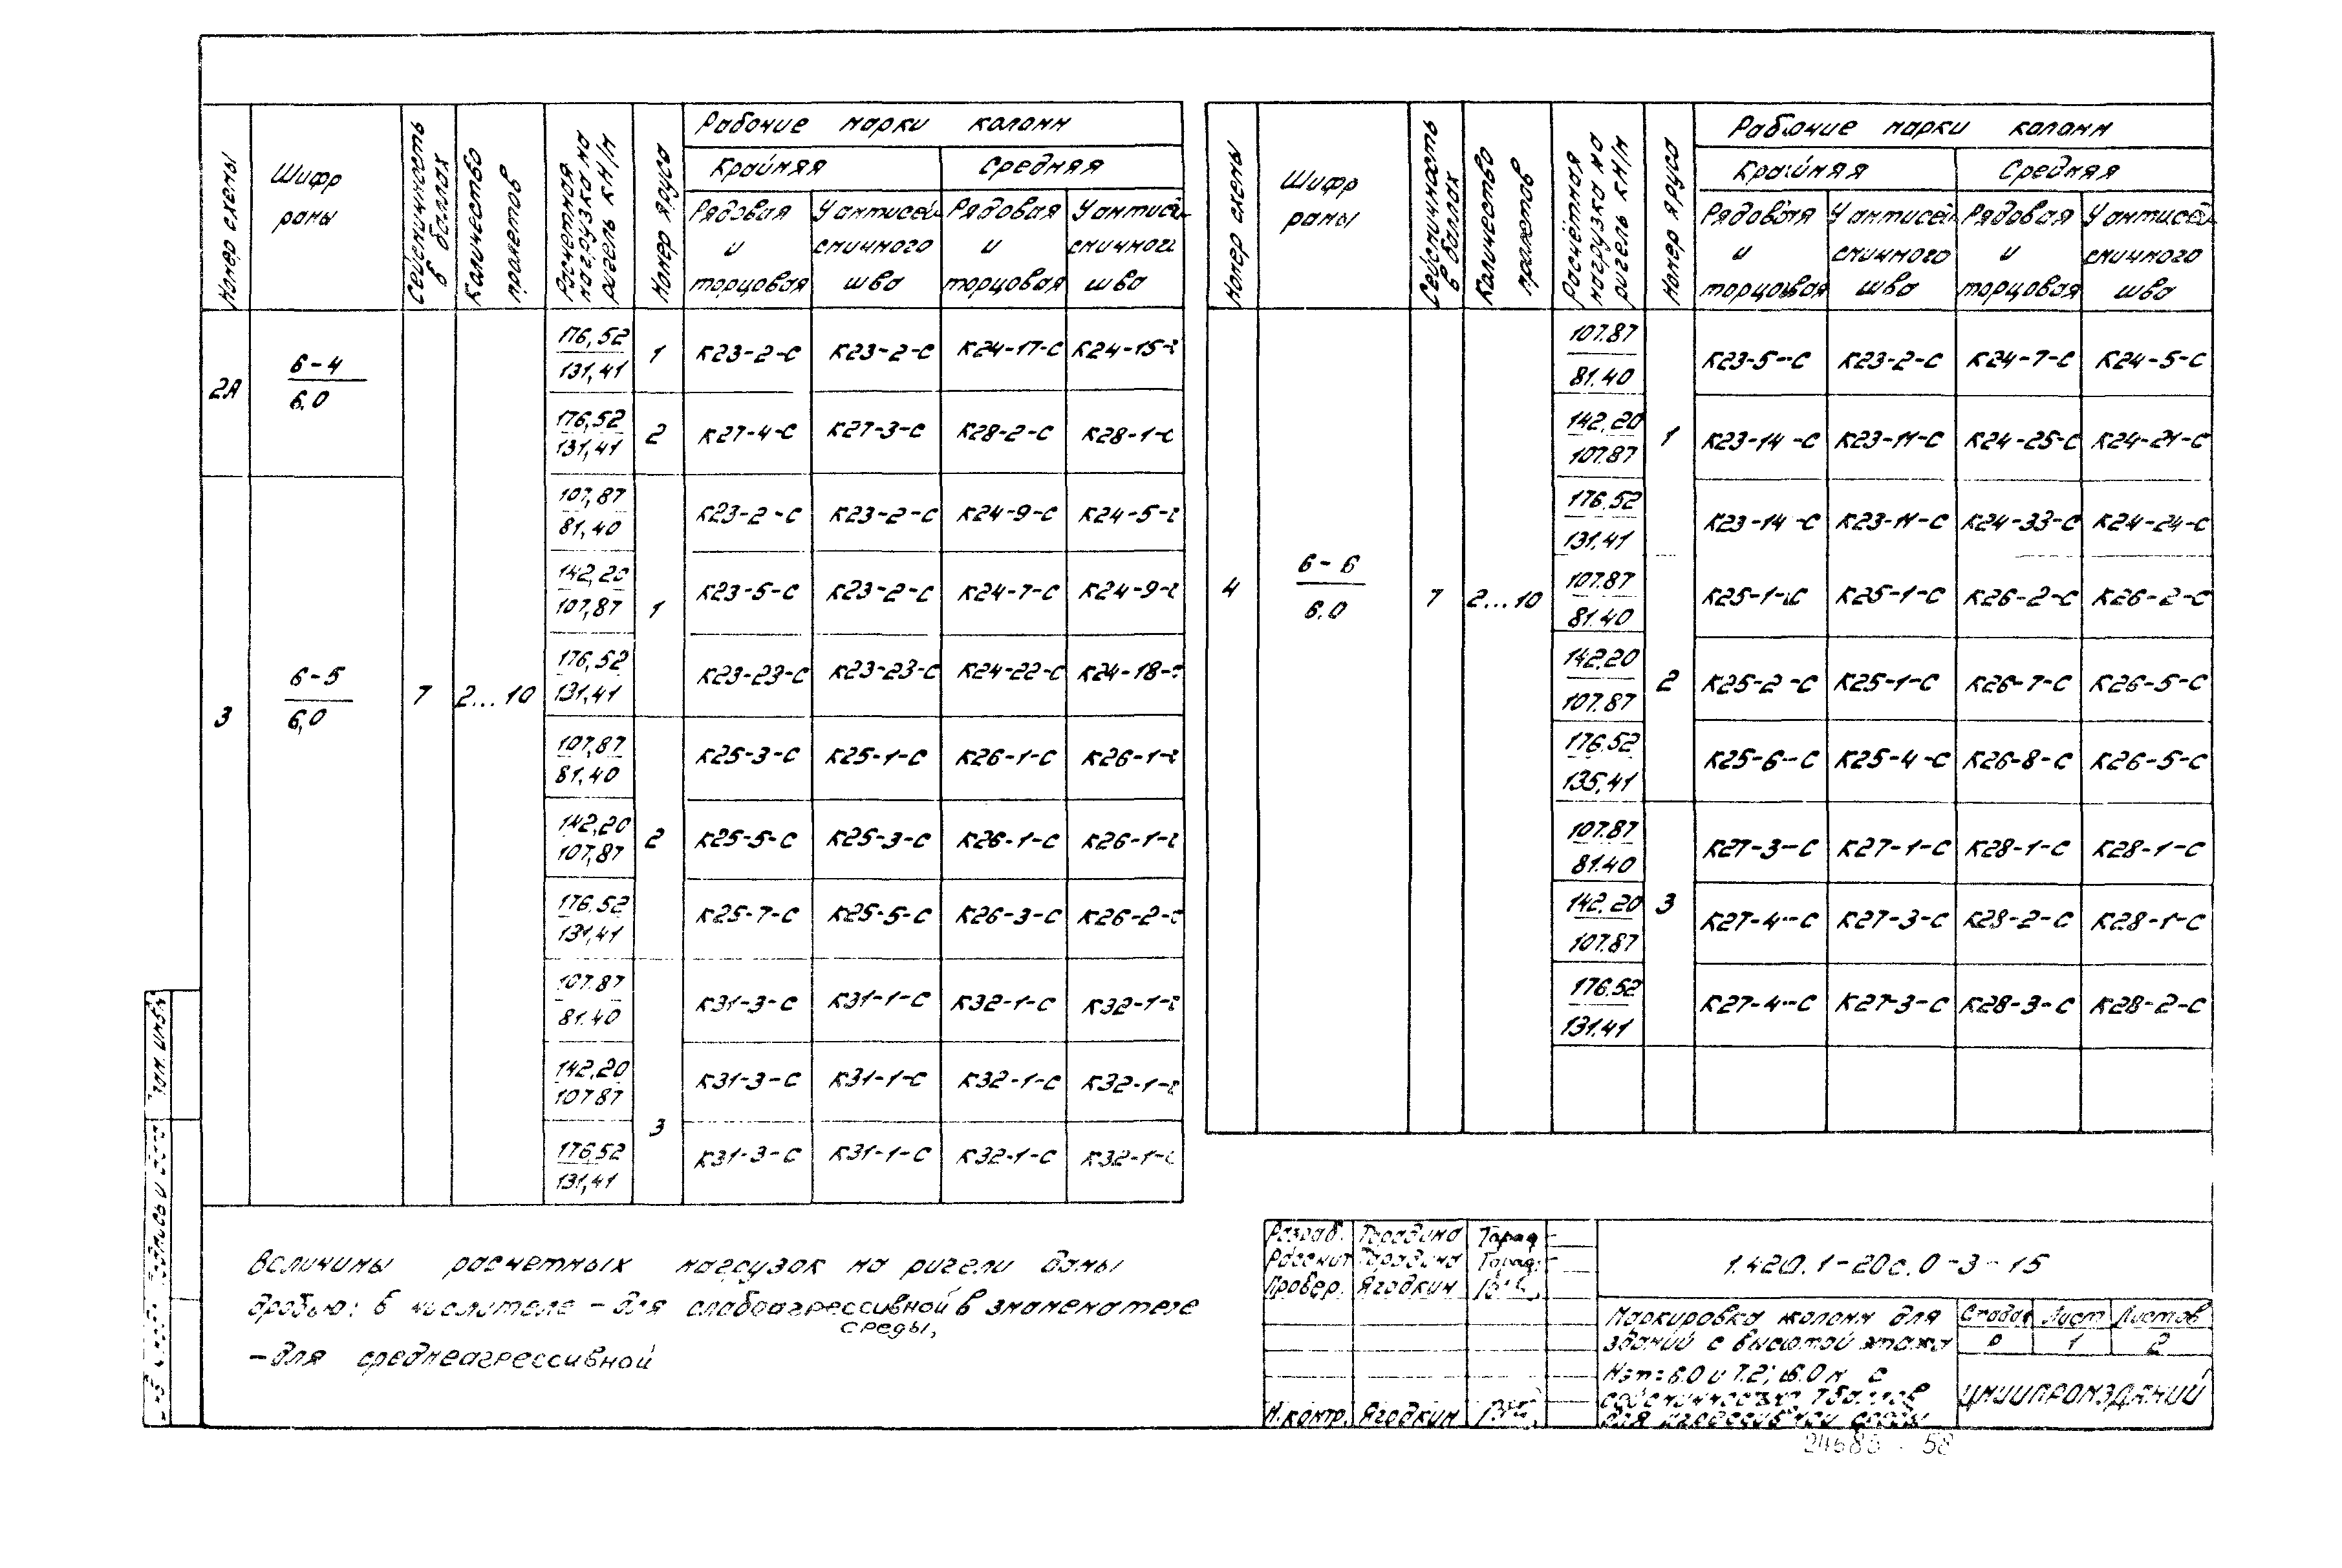 Номер схемы
Шифр рамы
Сейсмичность в баллах
Количество пролетов
Расчетная нагрузка на ригель кН/м
Номер яруса
Рабочие марки колонн
Крайняя Средняя
Рядовая и торцовая
У антисейсмичного шва
Рядовая и торцовая
У антисейсмичного шва
2А 6-4/6.0
176,52/131,41 1 К23-2-С К23-2-С К24-17-С К24-15-С
176,52/131,41 2 К27-4-С К27-3-С К28-2-С К28-1-С
3 6-5/6,0 7 2...10
107,87/81,40 К23-2-С К23-2-С К24-9-С К24-5-С
142,20/107,87 1 К23-5-С К23-2-С К24-7-С К24-9-С
176,52/131,41 К23-23-С К23-23-С К24-22-С К24-18-С
107,87/81,40 К25-3-С К25-1-С К26-1-С К26-1-С
142,20/107,87 2 К25-5-С К25-3-С К26-1-С К26-1-С
176,52/131,41 К25-7-С К25-5-С К26-3-С К26-2-С
107.87/81.40 К31-3-С К31-1-С К32-1-С К32-1-С
142,20/107.87 К31-3-С К31-1-С К32-1-С К32-1-С
3
176,52/131,41 К31-3-С К31-1-С К32-1-С К32-1-С
Номер схемы
Шифр рамы
Сейсмичность в баллах
Количество пролетов
Расчётная нагрузка на ригель кН/м
Номер яруса
Рабочие марки колонн
Крайняя Средняя
Рядовая и торцовая
У антисейсмичного шва
Рядовая и торцовая
У антисейсмичного шва
107.87/81.40 К23-5-С К23-2-С К24-7-С К24-5-С
142.20/107.87 1 К23-14-С К23-11-С К24-25-С К24-21-С
176.52/131.41 К23-14-С К23-11-С К24-33-С К24-24-С
4 6-6/6.0 7 2...10
107.87/81.40 К25-1-С К25-1-С К26-2-С К26-2-С
142.20/107.87 2 К25-2-С К25-1-С К26-7-С К26-5-С
176.52/135,41 К25-6-С К25-4-С К26-8-С К26-5-С
107.87/81.40 К27-3-С К27-1-С К28-1-С К28-1-С
142.20/107.87 3 К27-4-С К27-3-С К28-2-С К28-1-С
176.52/131.41 К27-4-С К27-3-С К28-3-С К28-2-С
Величины расчетных нагрузок на ригели даны
дробью: в числителе - для слабоагрессивной среды, в знаменателе
- для среднеагрессивной
Разраб. Тарадина Тарад
Рассчит Тарадина Тарад.
Провер. Ягодкин
Н.контр. Ягодкин
1.420.1-20с.0-3-15
Маркировка колонн для
зданий с высотой этажа
Нэт=6.0 и 7.2; 6.0 м с
сейсмичностью 7 баллов
для агрессивной среды
Стадия Лист Листов
Р 1 2
ЦНИИПРОМЗДАНИЙ
Взам. инв.
Подпись и дата
58